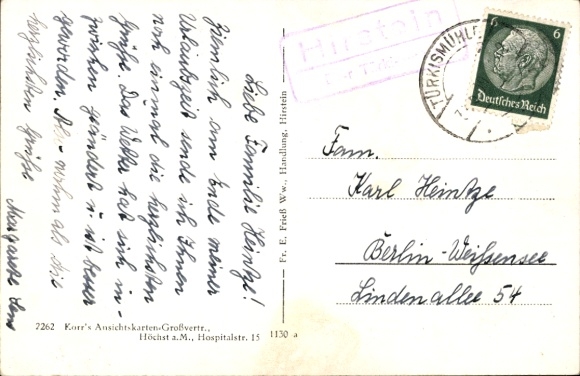 Liebe Familie Heintze!
Ziemlich am Ende meiner
Urlaubszeit sende ich Ihnen
noch einmal die herzlichsten
Grüße. Das Wetter hat sich in-
zwischen geändert u. ist besser
geworden. Also nochmals die
herzlichsten Grüße
Margarete
7262 Korr's Ansichtskarten-Großvertr.,
Höchst a.M., Hospitalstr. 15
1130 a
Fr. E. Frieß Ww., Handlung, Hirstein
Hirstein
TÜRKISMÜHLE
6 6
Deutsches Reich
Fam.
Karl Heintze
Berlin-Weißensee
Lindenallee 54